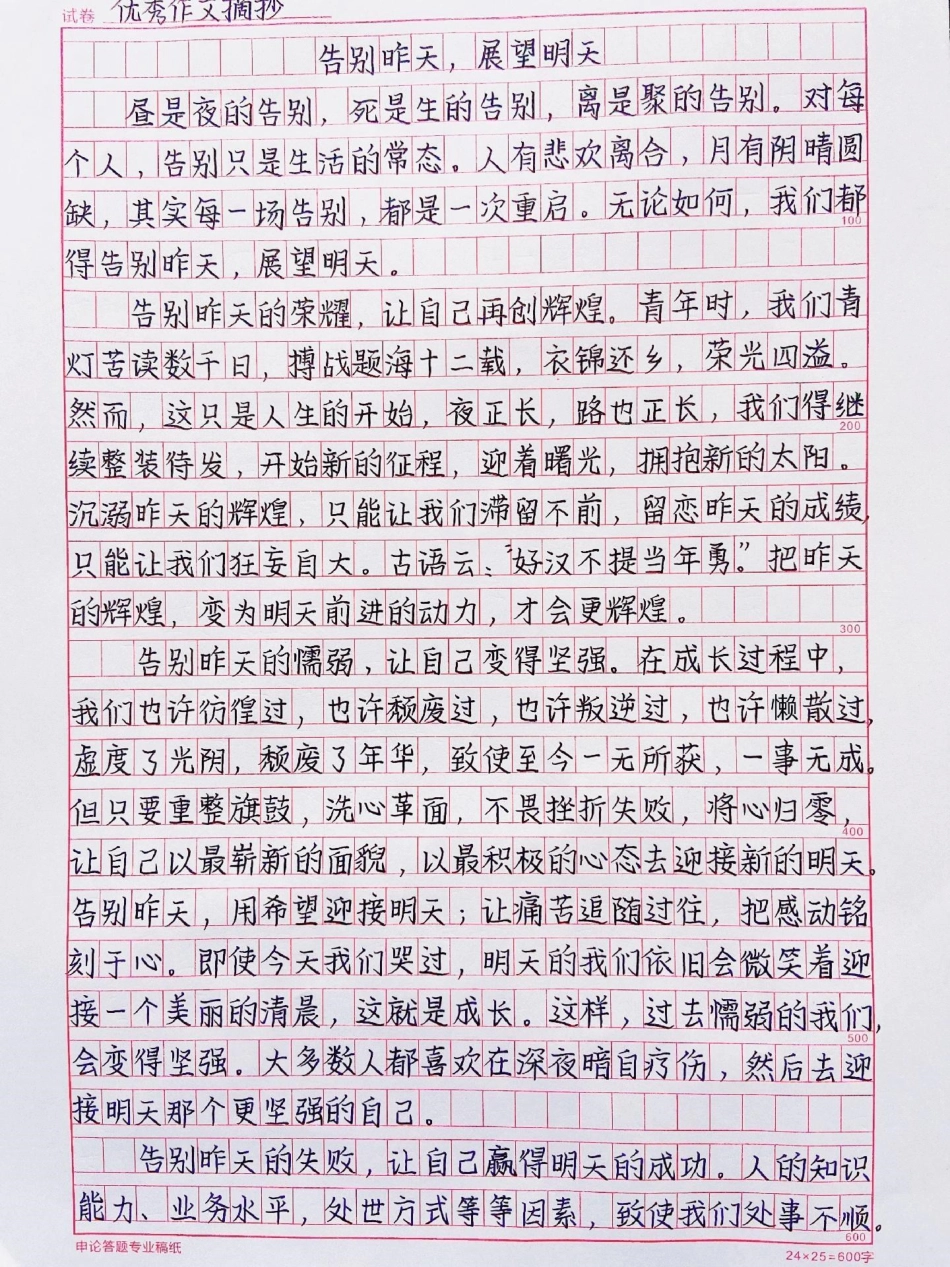 试卷 优秀作文摘抄
告别昨天，展望明天
昼是夜的告别，死是生的告别，离是聚的告别。对每
个人，告别只是生活的常态。人有悲欢离合，月有阴晴圆
缺，其实每一场告别，都是一次重启。无论如何，我们都
100
得告别昨天，展望明天。
告别昨天的荣耀，让自己再创辉煌。青年时，我们青
灯苦读数千日，搏战题海十二载，衣锦还乡，荣光四溢。
然而，这只是人生的开始，夜正长，路也正长，我们得继
200
续整装待发，开始新的征程，迎着曙光，拥抱新的太阳。
沉溺昨天的辉煌，只能让我们滞留不前，留恋昨天的成绩，
只能让我们狂妄自大。古语云：“好汉不提当年勇。”把昨天
的辉煌，变为明天前进的动力，才会更辉煌。
300
告别昨天的懦弱，让自己变得坚强。在成长过程中，
我们也许彷徨过，也许颓废过，也许叛逆过，也许懒散过，
虚度了光阴，颓废了年华，致使至今一无所获，一事无成。
但只要重整旗鼓，洗心革面，不畏挫折失败，将心归零，
400
让自己以最崭新的面貌，以最积极的心态去迎接新的明天。
告别昨天，用希望迎接明天；让痛苦追随过往，把感动铭
刻于心。即使今天我们哭过，明天的我们依旧会微笑着迎
接一个美丽的清晨，这就是成长。这样，过去懦弱的我们，
500
会变得坚强。大多数人都喜欢在深夜暗自疗伤，然后去迎
接明天那个更坚强的自己。
告别昨天的失败，让自己赢得明天的成功。人的知识
能力、业务水平，处世方式等等因素，致使我们处事不顺。
600
申论答题专业稿纸 24×25=600字